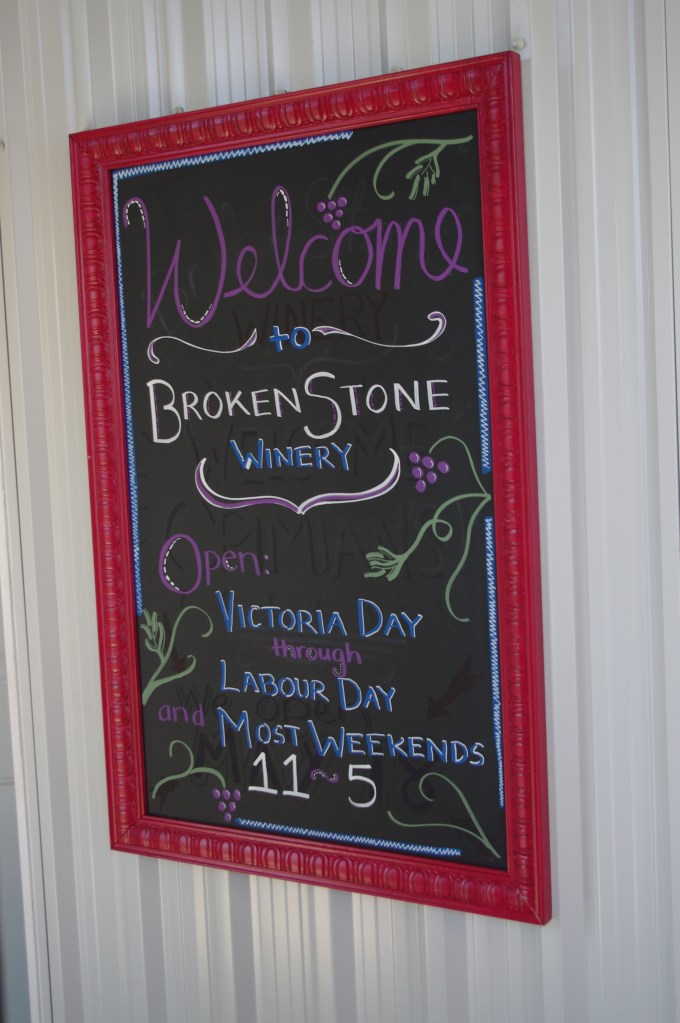 Welcome
to
BROKENSTONE
WINERY
Open:
VICTORIA DAY
through
LABOUR DAY
and MOST WEEKENDS
11~5